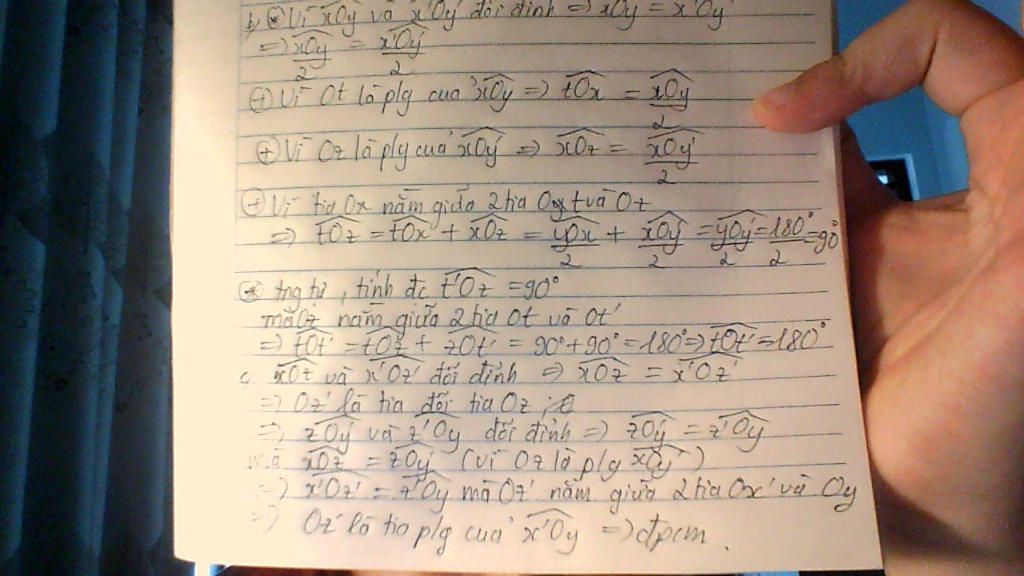 b, ⊛ Vì xOy và x'Oy' đối đỉnh => xOy = x'Oy'
=> xOy/2 = x'Oy'/2
⊕ Vì Ot là p/g của xOy => tOx = xOy/2
⊕ Vì Oz là p/g của xOy' => xOz = xOy'/2
⊕ Vì tia Ox nằm giữa 2 tia Ot và Oz
=> tOz = tOx + xOz = yOx/2 + xOy'/2 = yOy'/2 = 180°/2 = 90°
⊛ tng tự, tính đc t'Oz = 90°
mà Oz nằm giữa 2 tia Ot và Ot'
=> tOt' = tOz + zOt' = 90° + 90° = 180° => tOt' = 180°
c, xOz và x'Oz' đối đỉnh => xOz = x'Oz'
=> Oz' là tia đối tia Oz ;
=> zOy' và z'Oy đối đỉnh => zOy' = z'Oy
mà xOz = zOy' (vì Oz là p/g xOy')
=> x'Oz' = z'Oy mà Oz' nằm giữa 2 tia Ox' và Oy
=> Oz' là tia p/g của x'Oy => đpcm.